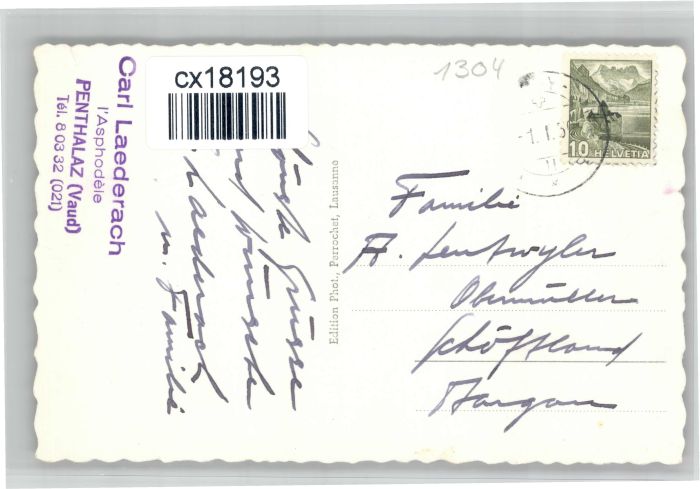 Carl Laederach
l'Asphodèle
PENTHALAZ (Vaud)
Tél. 8 03 32 (021)
cx18193
1304
-1.1.5
10 HELVETIA
Grüsse
Wünsche
Laederach
m. Familie
Edition Phot., Perrochet, Lausanne
Familie
A. Lentwyler
Obermüller
Schöftland
Aargau